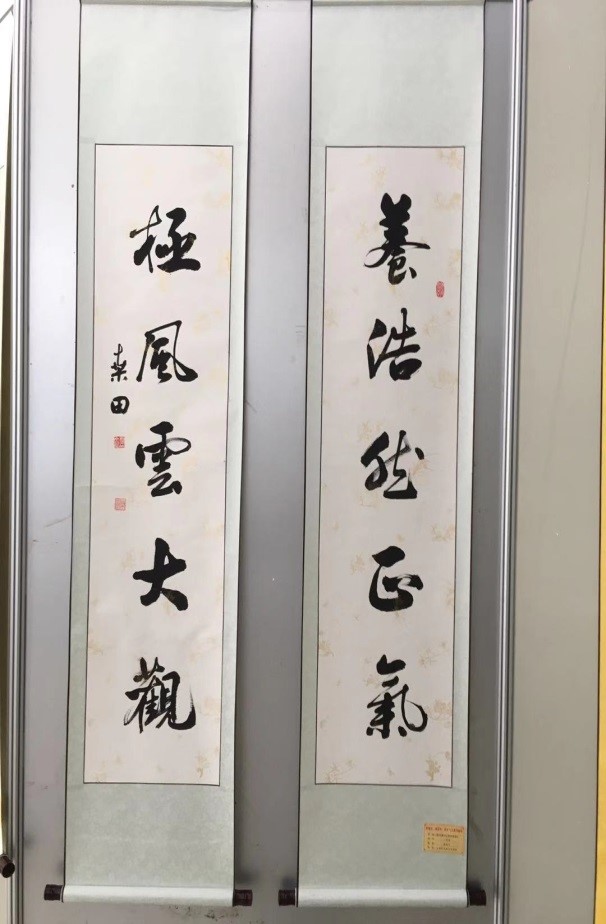 養浩然正氣
極風雲大觀
桑田